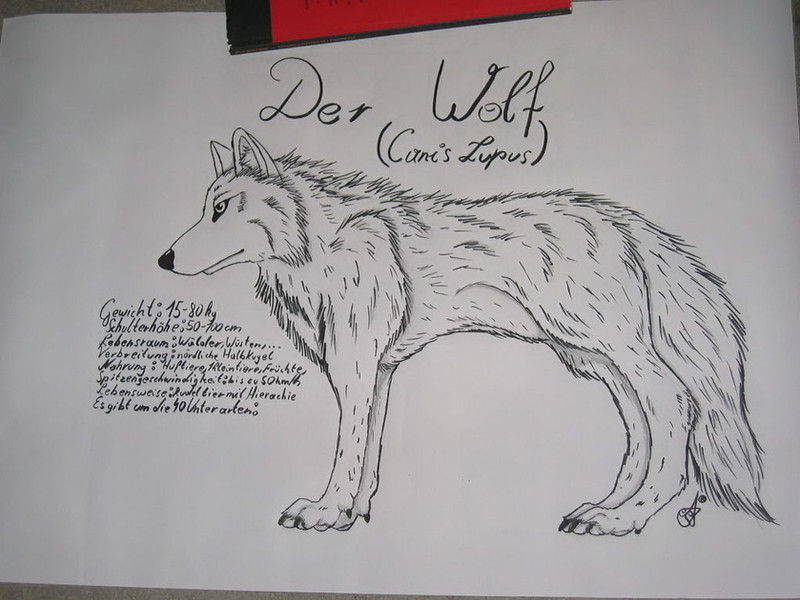 Der Wolf
(Canis Lupus)
Gewicht: 15-80kg
Schulterhöhe: 50-100cm
Lebensraum: Wälder, Wüsten,...
Verbreitung: nördliche Halbkugel
Nahrung: Huftiere, Kleintiere, Früchte,
Spitzengeschwindigkeit: bis zu 50km/h
Lebensweise: Rudeltier mit Hierachie
Es gibt um die 40 Unterarten: